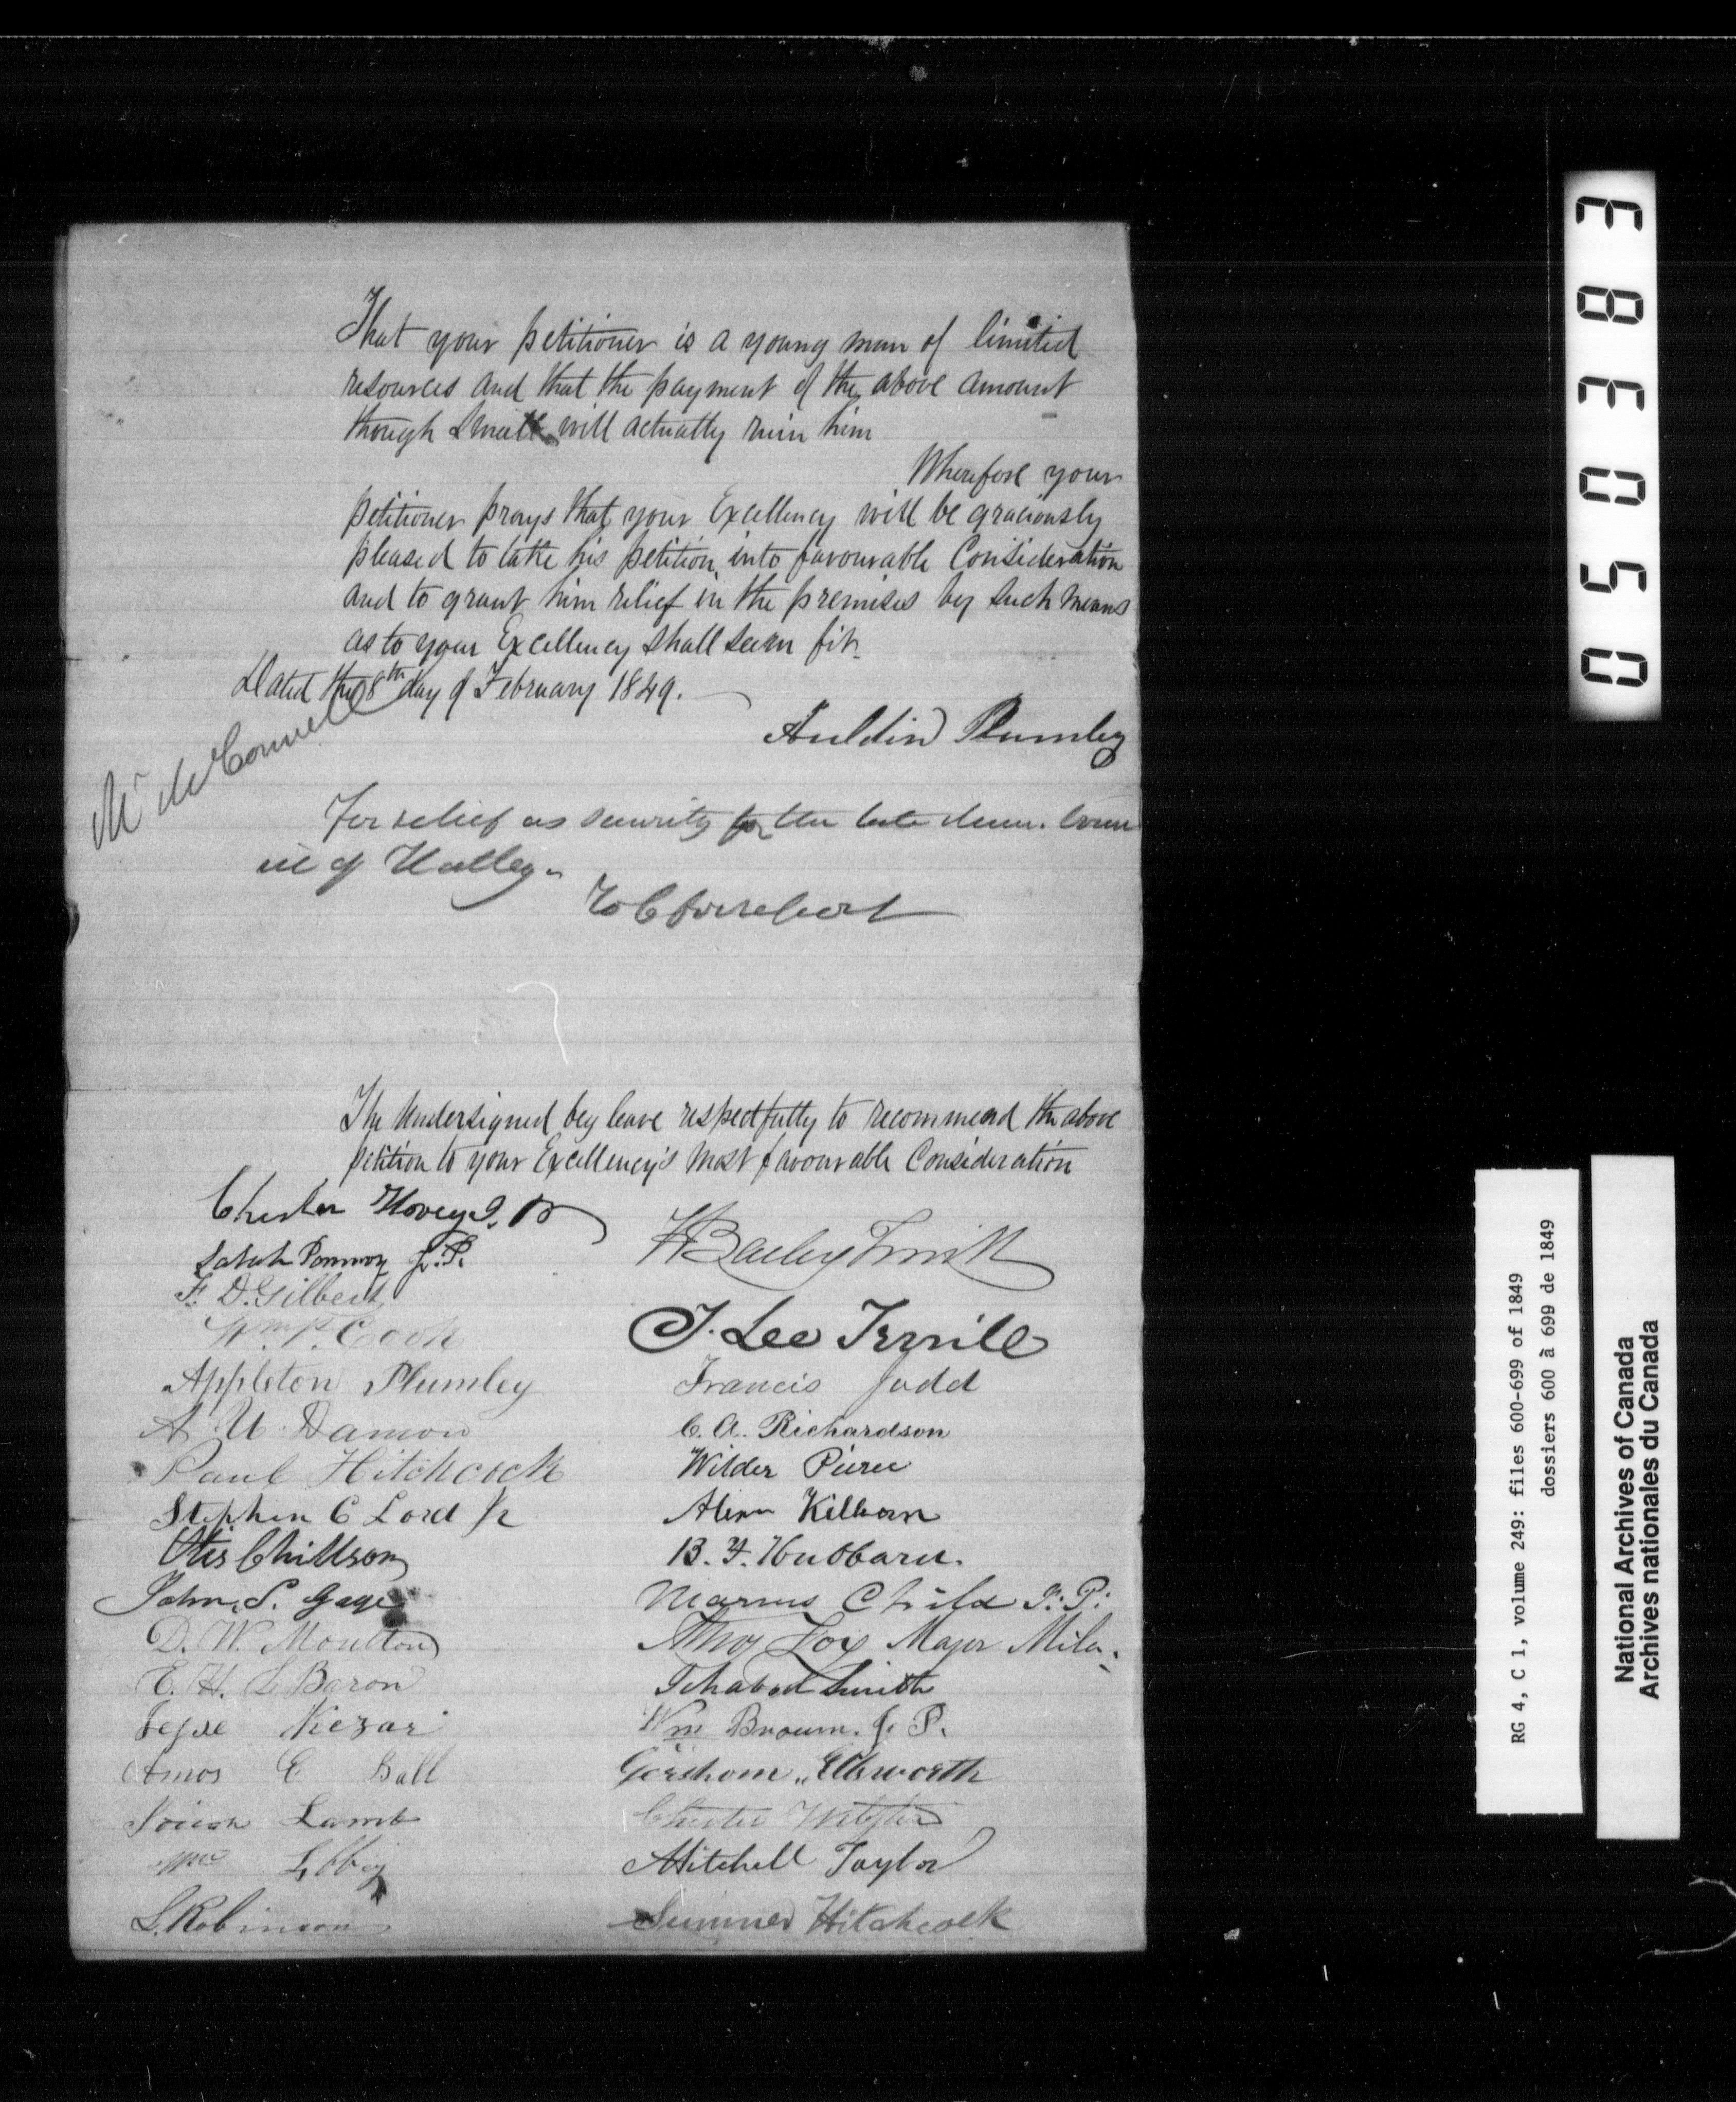 That your petitioner is a young man of limited
resources and that the payment of the above amount
though small will actually ruin him
Wherefore your
petitioner prays that your Excellency will be graciously
pleased to take his petition into favourable Consideration
and to grant him relief in the premises by such means
as to your Excellency shall seem fit.
Dated the 8th day of February 1849.
Plumley
Mr McConnell
For relief as security for the late
of Hatley.
The Undersigned beg leave respectfully to recommend the above
petition to your Excellency's most favourable Consideration
Chester Hovey J. P.
Pomroy J. P.
F. D. Gilbert
Wm. P. Cook
Appleton Plumley
A. U. Damon
Paul Hitchcock
Stephen C Lord Jr
Otis Chillson
John S. Gage
D. W. Moulton
E. H. LeBaron
Jesse Kezar
Amos E Ball
Josiah Lamb
Wm Libbey
L. Robinson
H Bailey Smith
T. Lee Terrill
Francis Judd
C. A. Richardson
Wilder Pierce
Alexr Kilborn
B. F. Hubbard.
Marcus Child J. P.
Thos Fox Major Mila.
Ichabod Smith
Wm Brown. J. P.
Gershom Elsworth
Chester Webster
Mitchell Taylor
Sumner Hitchcock
050383
RG 4, C 1, volume 249: files 600-699 of 1849
dossiers 600 à 699 de 1849
National Archives of Canada
Archives nationales du Canada